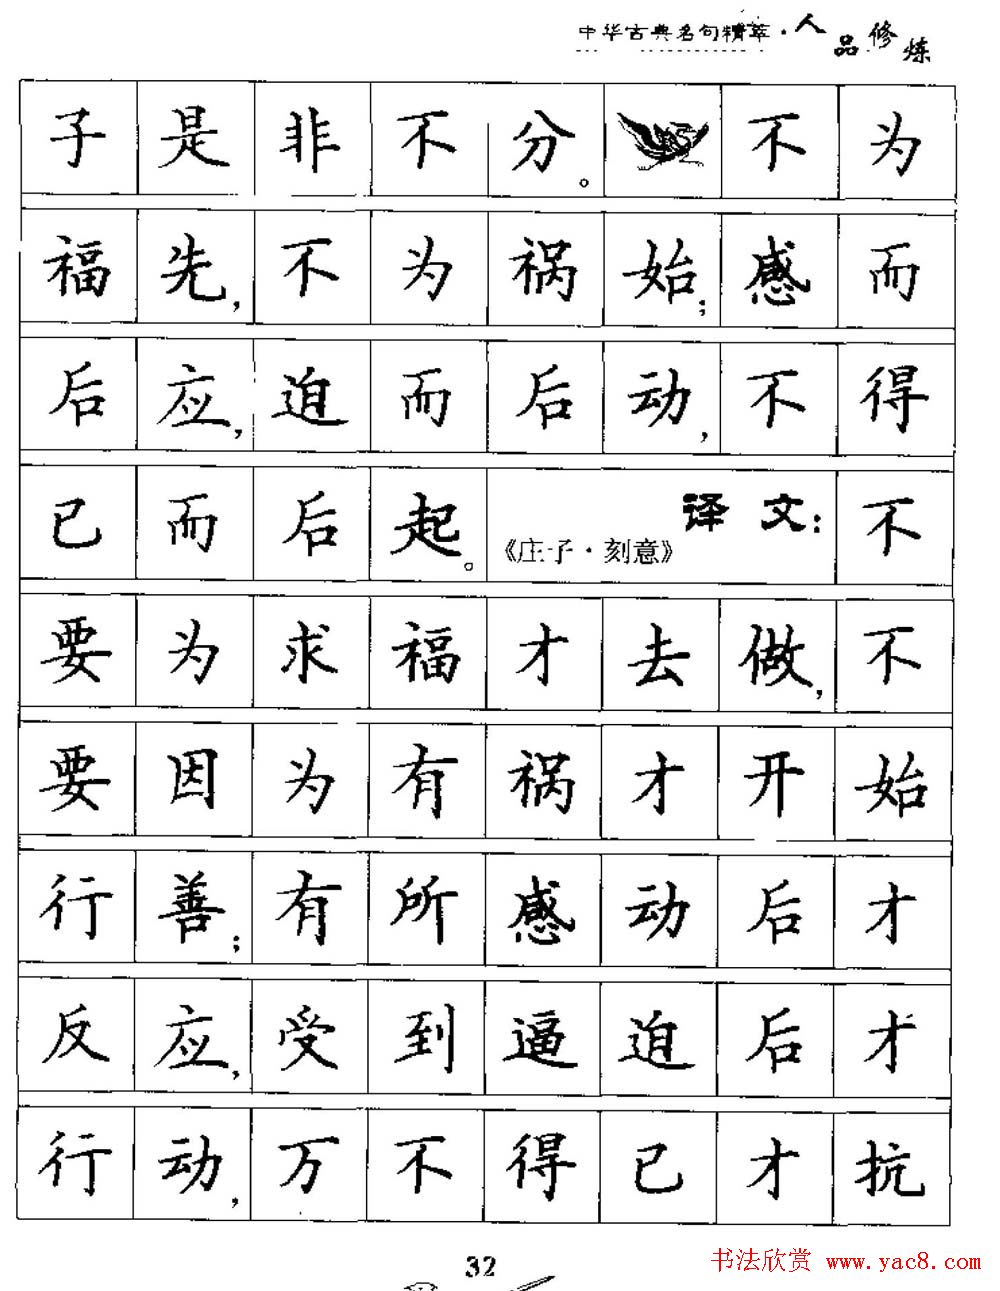 中华古典名句精萃·人品修炼
子是非不分。不为
福先，不为祸始；感而
后应，迫而后动，不得
已而后起。《庄子·刻意》译文：不
要为求福才去做，不
要因为有祸才开始
行善；有所感动后才
反应，受到逼迫后才
行动，万不得已才抗
32
书法欣赏 www.yac8.com